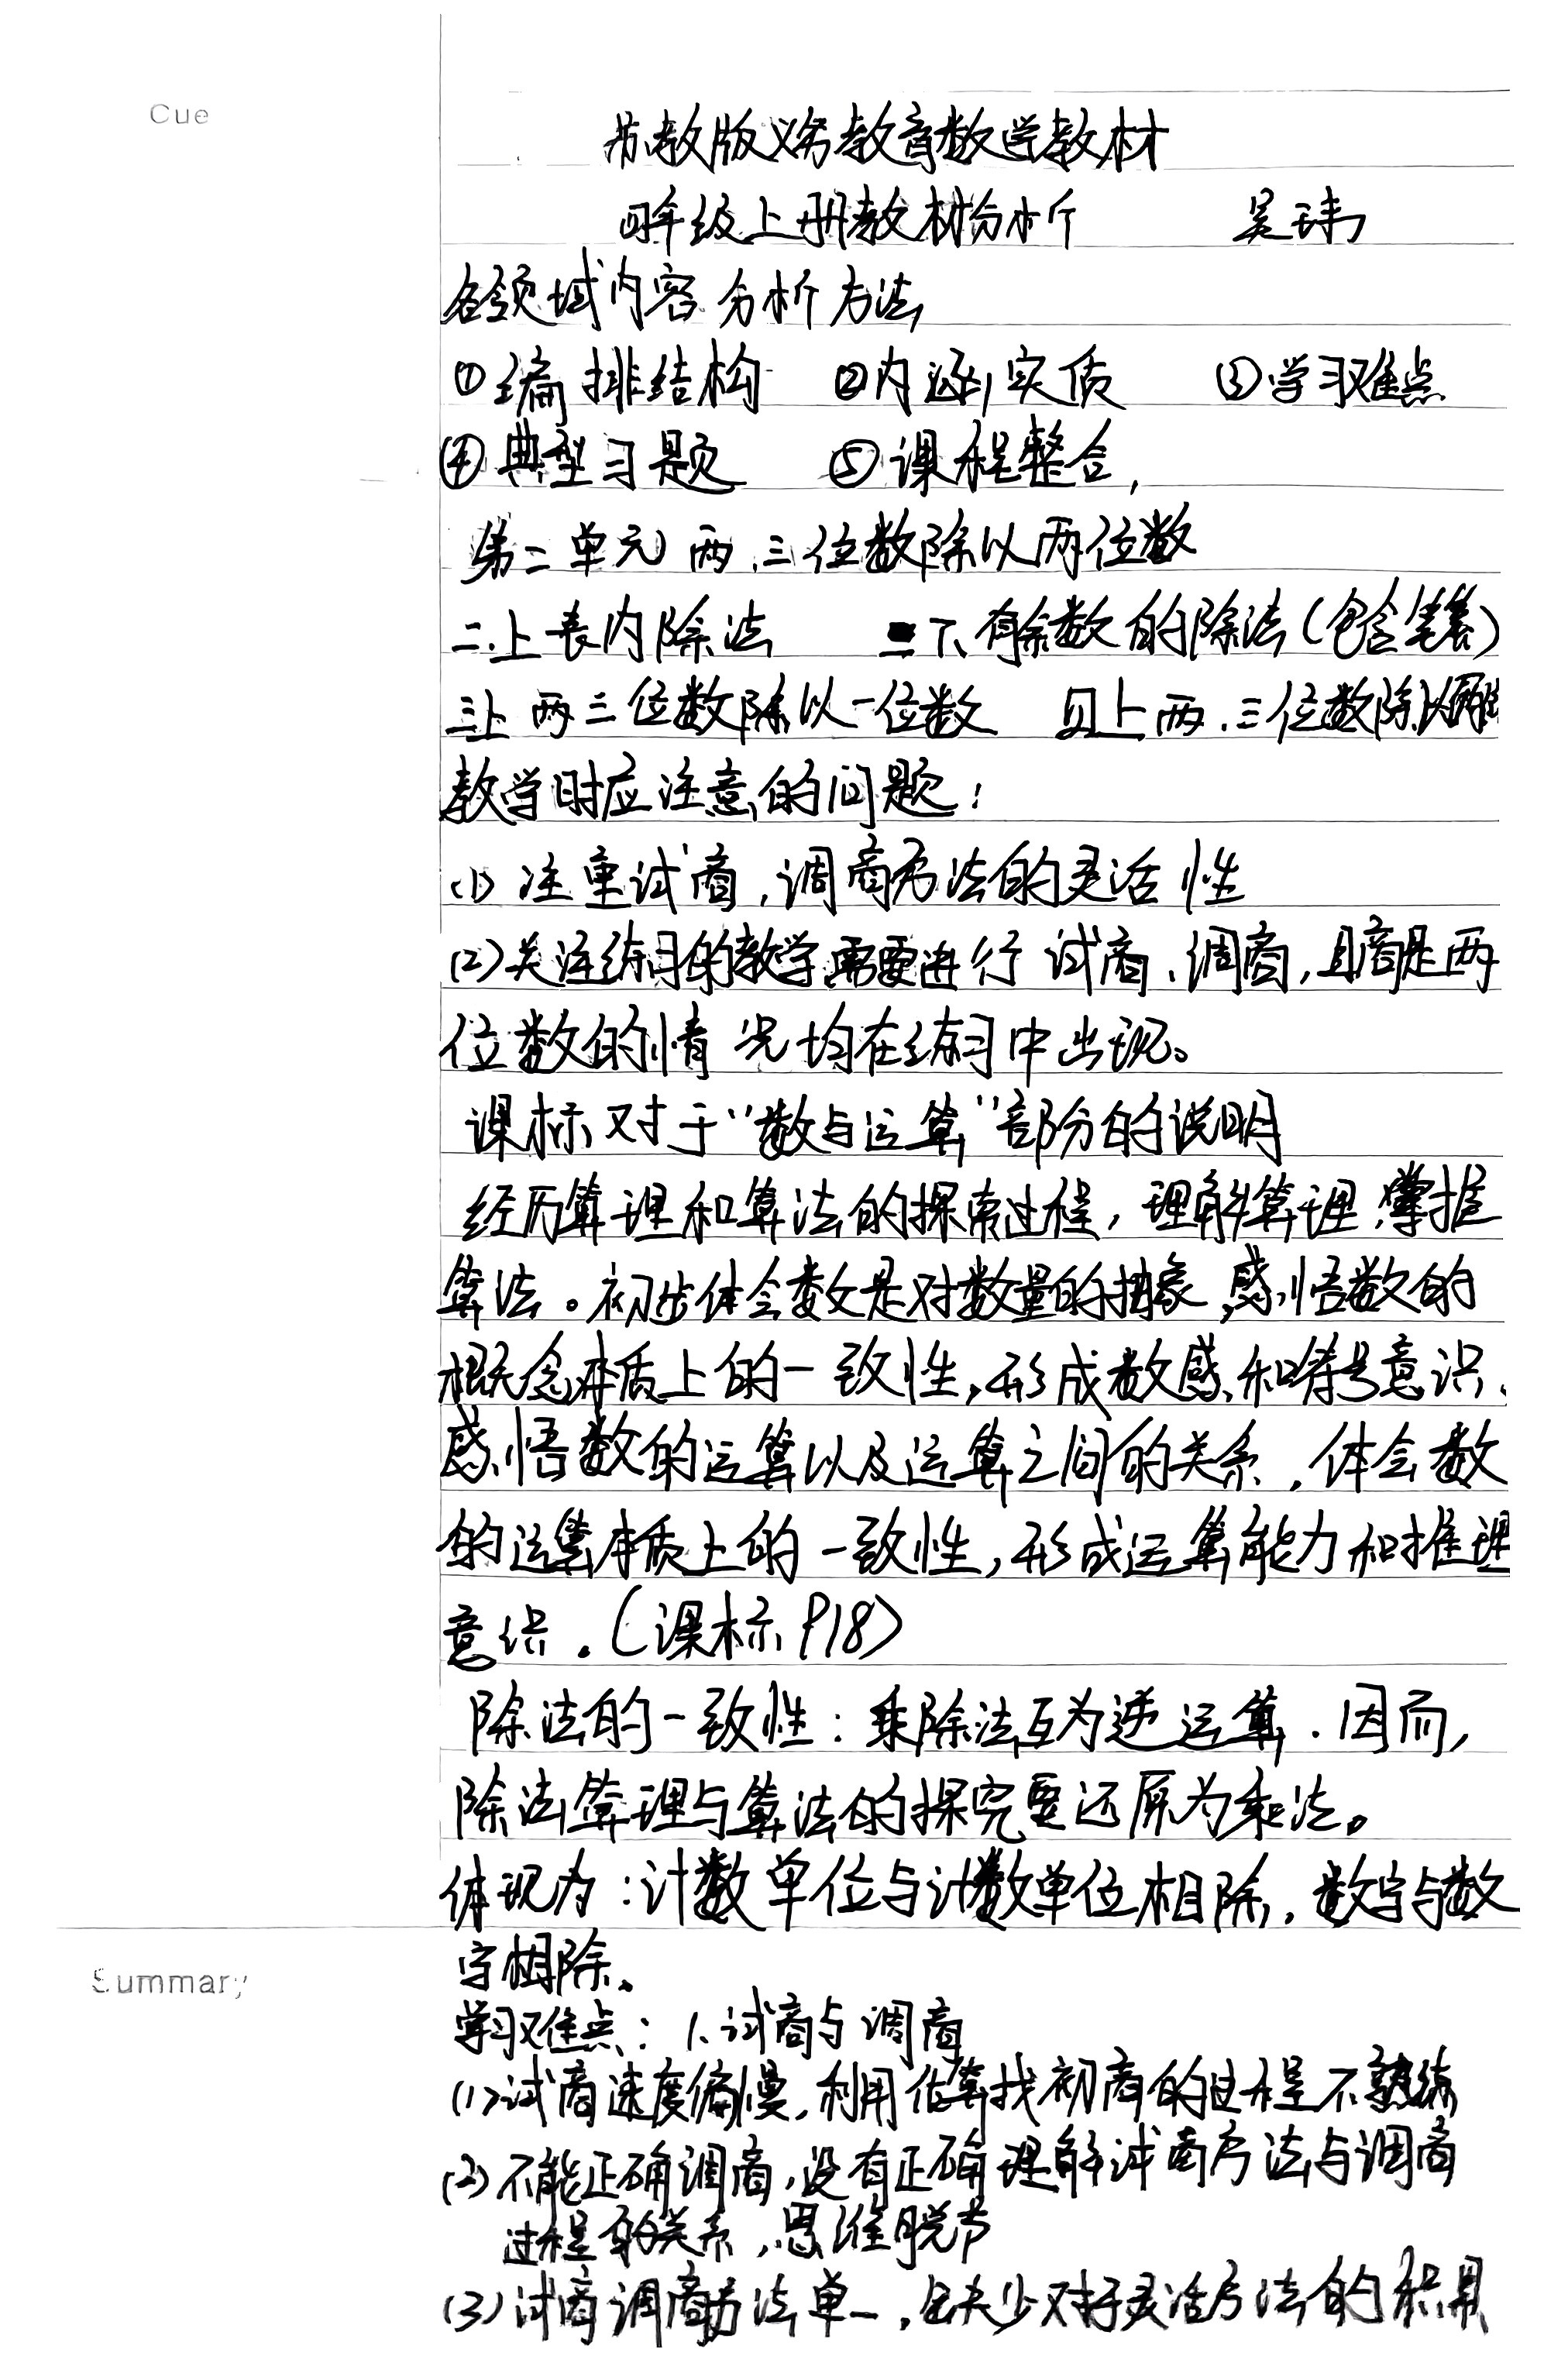 Cue
苏教版义务教育数学教材
四年级上册教材分析 吴玮
各领域内容分析方法
①编排结构 ②内涵实质 ③学习难点
④典型习题 ⑤课程整合,
第二单元 两、三位数除以两位数
二上表内除法 二下有余数的除法(包含竖式)
三上 两三位数除以一位数 四上两、三位数除以两位
教学时应注意的问题:
(1) 注重试商,调商方法的灵活性
(2)关注练习的教学,需要进行试商、调商,且商是两
位数的情况均在练习中出现。
课标对于“数与运算”部分的说明
经历算理和算法的探索过程,理解算理,掌握
算法。初步体会数是对数量的抽象,感悟数的
概念本质上的一致性,形成数感和符号意识、
感悟数的运算以及运算之间的关系,体会数
的运算本质上的一致性,形成运算能力和推理
意识。(课标P18)
除法的一致性:乘除法互为逆运算.因而,
除法算理与算法的探究要还原为乘法。
体现为:计数单位与计数单位相除,数字与数
字相除。
Summary
学习难点:1、试商与调商
(1)试商速度偏慢,利用估算找初商的过程不熟练
(2)不能正确调商,没有正确理解试商方法与调商
过程的关系,思维脱节
(3)试商调商方法单一,缺少对于灵活方法的积累